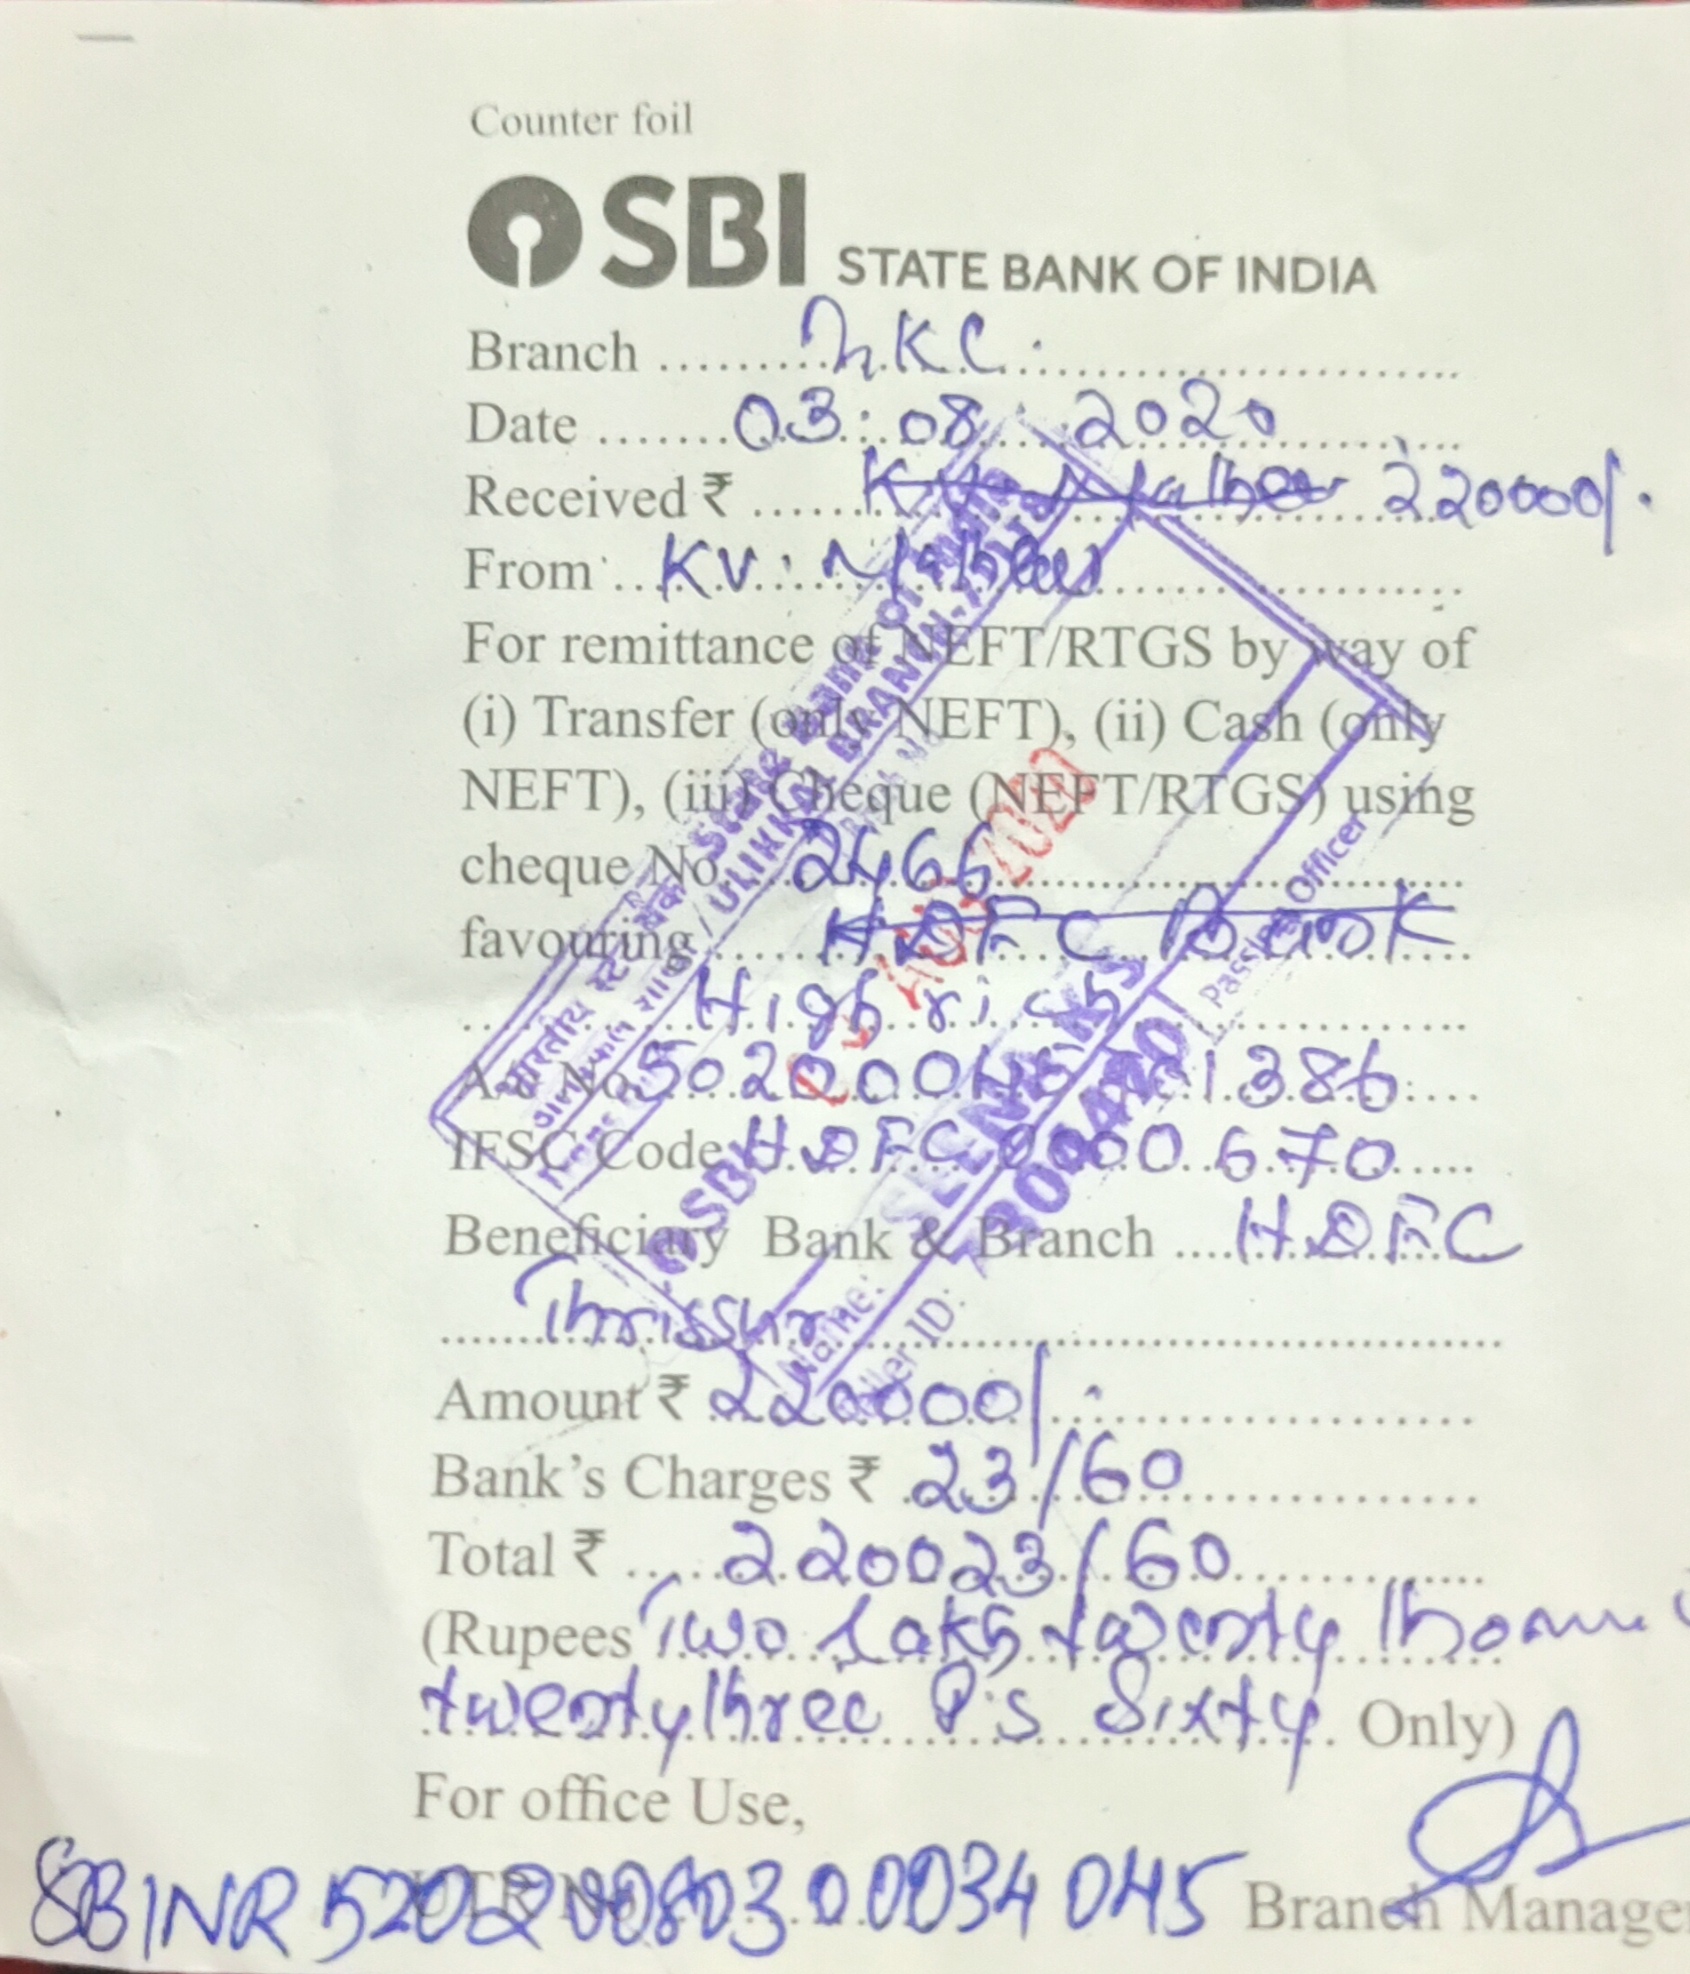 Counter foil
SBI STATE BANK OF INDIA
Branch ......... KC.
Date ....... 03 : 08 : 2020
Received ₹ ..... 220000/-
From .. KV.
For remittance of NEFT/RTGS by way of
(i) Transfer (only NEFT), (ii) Cash (only
NEFT), (iii) Cheque (NEFT/RTGS) using
cheque No. 2466
favouring ..... HDFC Bank
High rich
A/c No. 50200 1386
IFSC Code HDFC0000670
Beneficiary Bank & Branch .... HDFC
Thrissur
Amount ₹ 220000/-
Bank's Charges ₹ 23/60
Total ₹ .... 220023/60
(Rupees Two Lakh twenty
twentythree P's Sixty. Only)
For office Use,
UTR No
SBINR52020080300034045 Branch Manager
भारतीय स्टेट बैंक State Bank of India
ULIKKAL BRANCH
SBI
Name: SEENA KS
ID:
Passing Officer